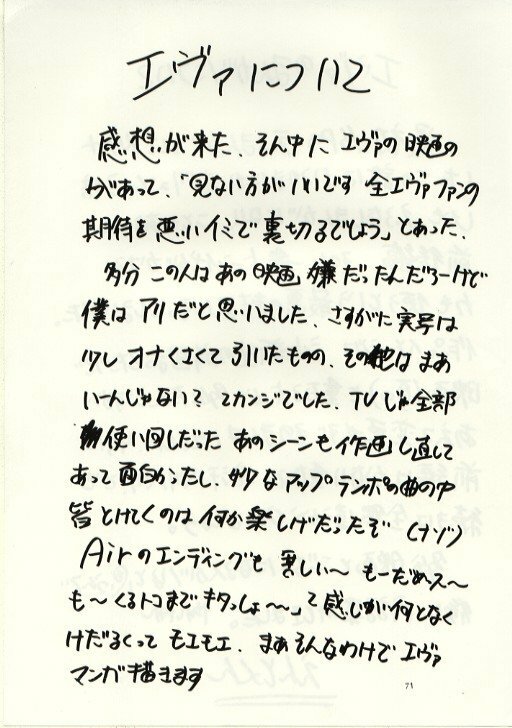 エヴァについて
感想が来た、そん中にエヴァの映画の
があって、「見ない方がいいです 全エヴァファンの
期待を悪いイミで裏切るでしょう」とあった、
多分この人はあの映画嫌だったんだろーけど
僕はアリだと思いました、さすがに実写は
少しオナくさくて引いたものの、その他はまあ
いーんじゃない?てカンジでした、TVじゃ全部
使い回しだったあのシーンも作画し直して
あって面白かったし、妙なアップテンポの曲の中
皆とけてくのは何か楽しげだったぞ(ナゾ)
Airのエンディングも 美しい〜 もーだめース〜
も〜くるトコまでキタっしょ〜〜」て感じが何となく
けだるくってモエモエ、まあそんなわけでエヴァ
マンガ描きます
71